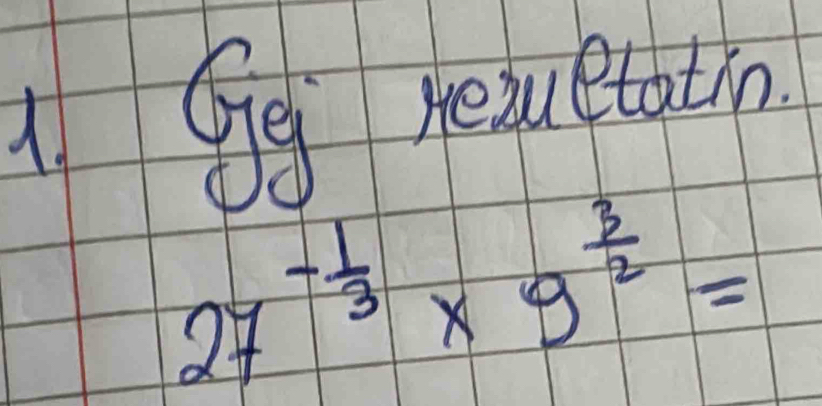 1. Gjej rezultatin.
27^{-\frac{1}{3}} x 9^{\frac{3}{2}} =